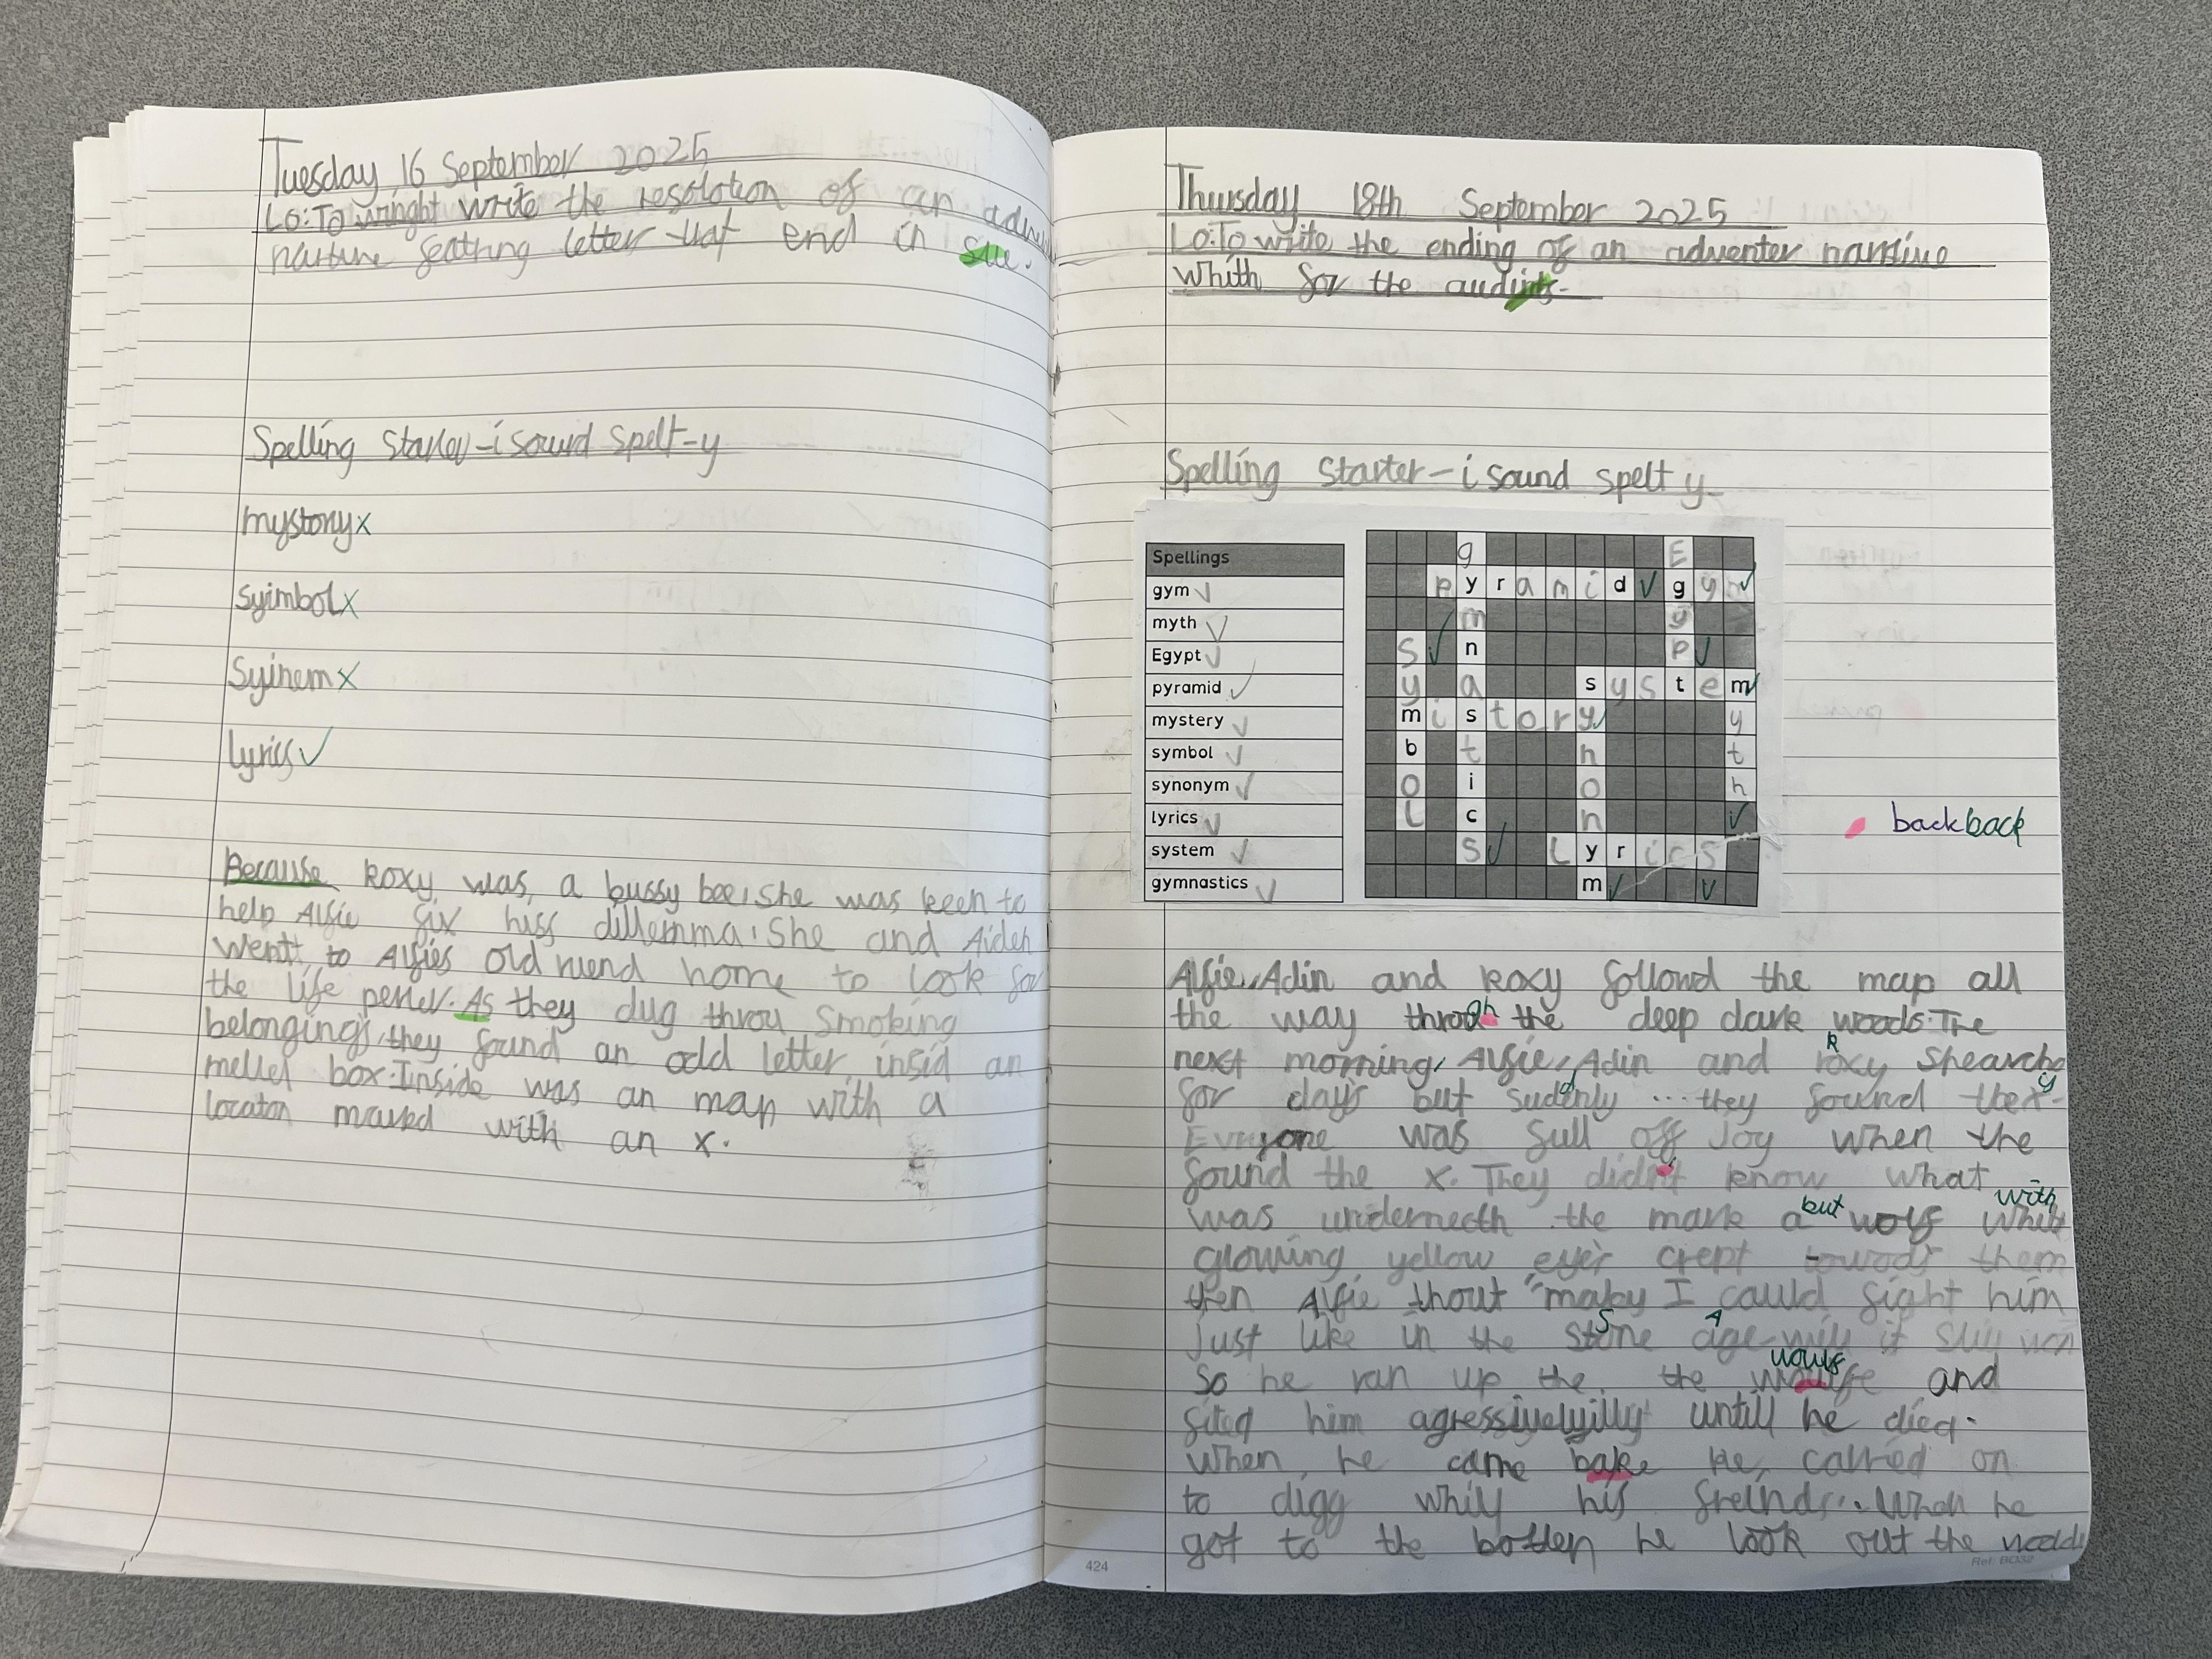 Tuesday 16 September 2025
Lo: To wright write the resolotion of an
narture feathing letter that end in sue.
Spelling Starter-i sound spelt-y
mystory x
Syimbol x
Syinem x
lyrics ✓
Because Roxy was, a bussy bee, she was keen to
help Alfie fix hiss dillemma. She and Aiden
wentt to Alfies old ruend home to look for
the life peller. As they dug throu smoking
belongings, they found an odd letter, insid an
mellel box. Inside was an map with a
locaton marked with an x.
Thursday 18th September 2025
Lo: To write the ending of an adventer narrtive
whith for the
Spelling starter-i sound spelt y
Spellings
gym ✓
myth ✓
Egypt ✓
pyramid ✓
mystery ✓
symbol ✓
synonym ✓
lyrics ✓
system ✓
gymnastics ✓
gymnastics
Egypt
pyramid
gym
symbol
system
mistory
synonym
myth
lyrics
backback
Alfie, Adin and Roxy followd the map all
the way through the deep dark woods. The
next morning, Alfie, Adin and Roxy
for days but suddenly ... they found the x.
Everyone was full off joy when the
found the x. They didn't know what
was underneeth the mark a but wolf with
glowing yellow eyes crept towods them
then Alfie thout "maby I cauld fight him
just like in the Stone Age
So he ran up the. the woulf and
fited him agressivelyilly untill he died.
when he came bake he, carred on
to digg whily his freinds... When he
got to the botten he look out the
424
Ref: BO32